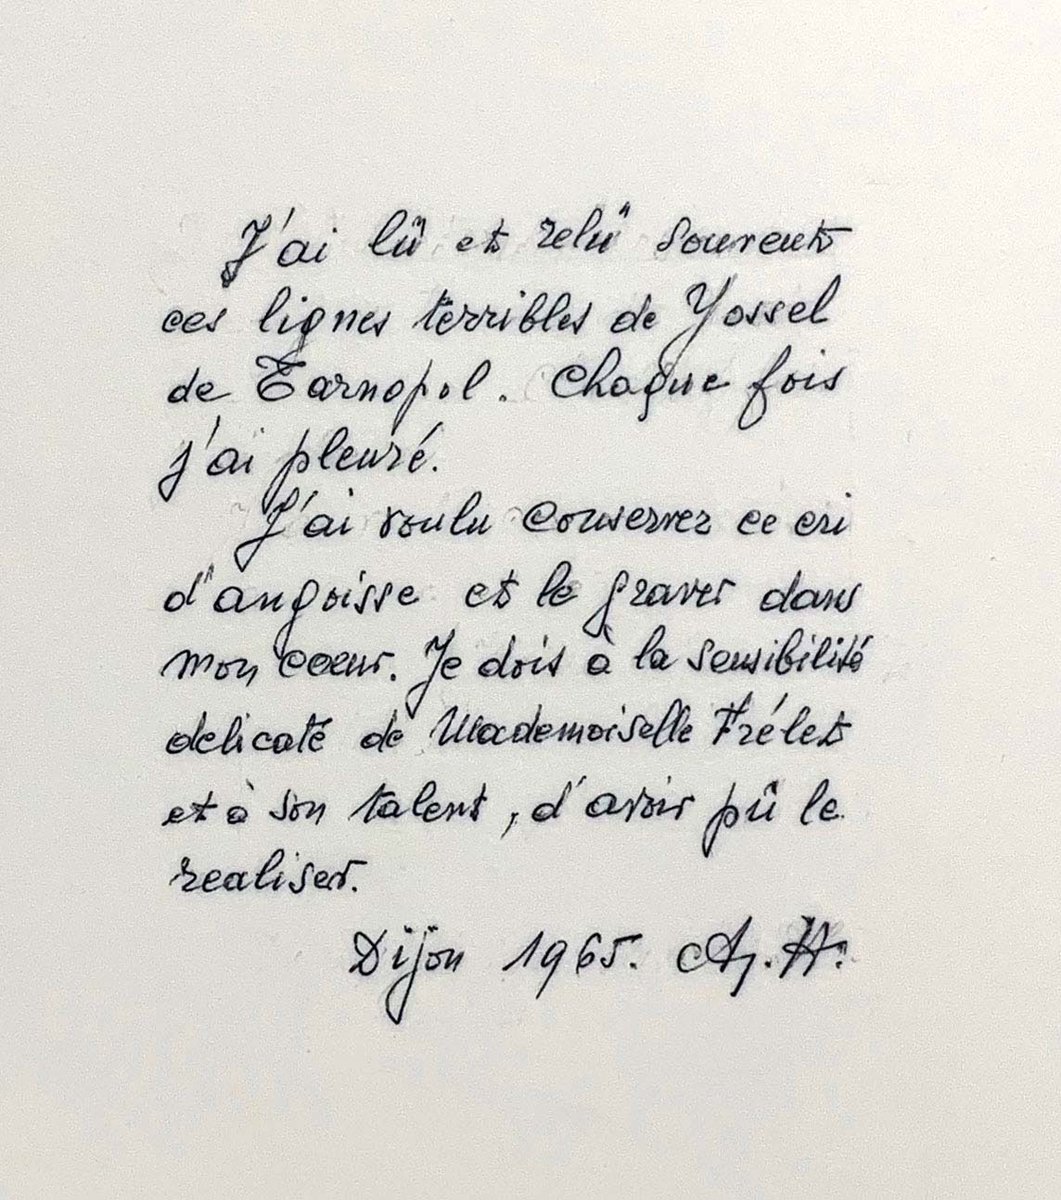 J'ai lû et relû souvent
ces lignes terribles de Yossel
de Tarnopol. Chaque fois
j'ai pleuré.
J'ai voulu conserver ce cri
d'angoisse et le graver dans
mon coeur. Je dois à la sensibilité
delicate de Mademoiselle Frélet
et à son talent, d'avoir pû le
realiser.
Dijon 1965. A. H.